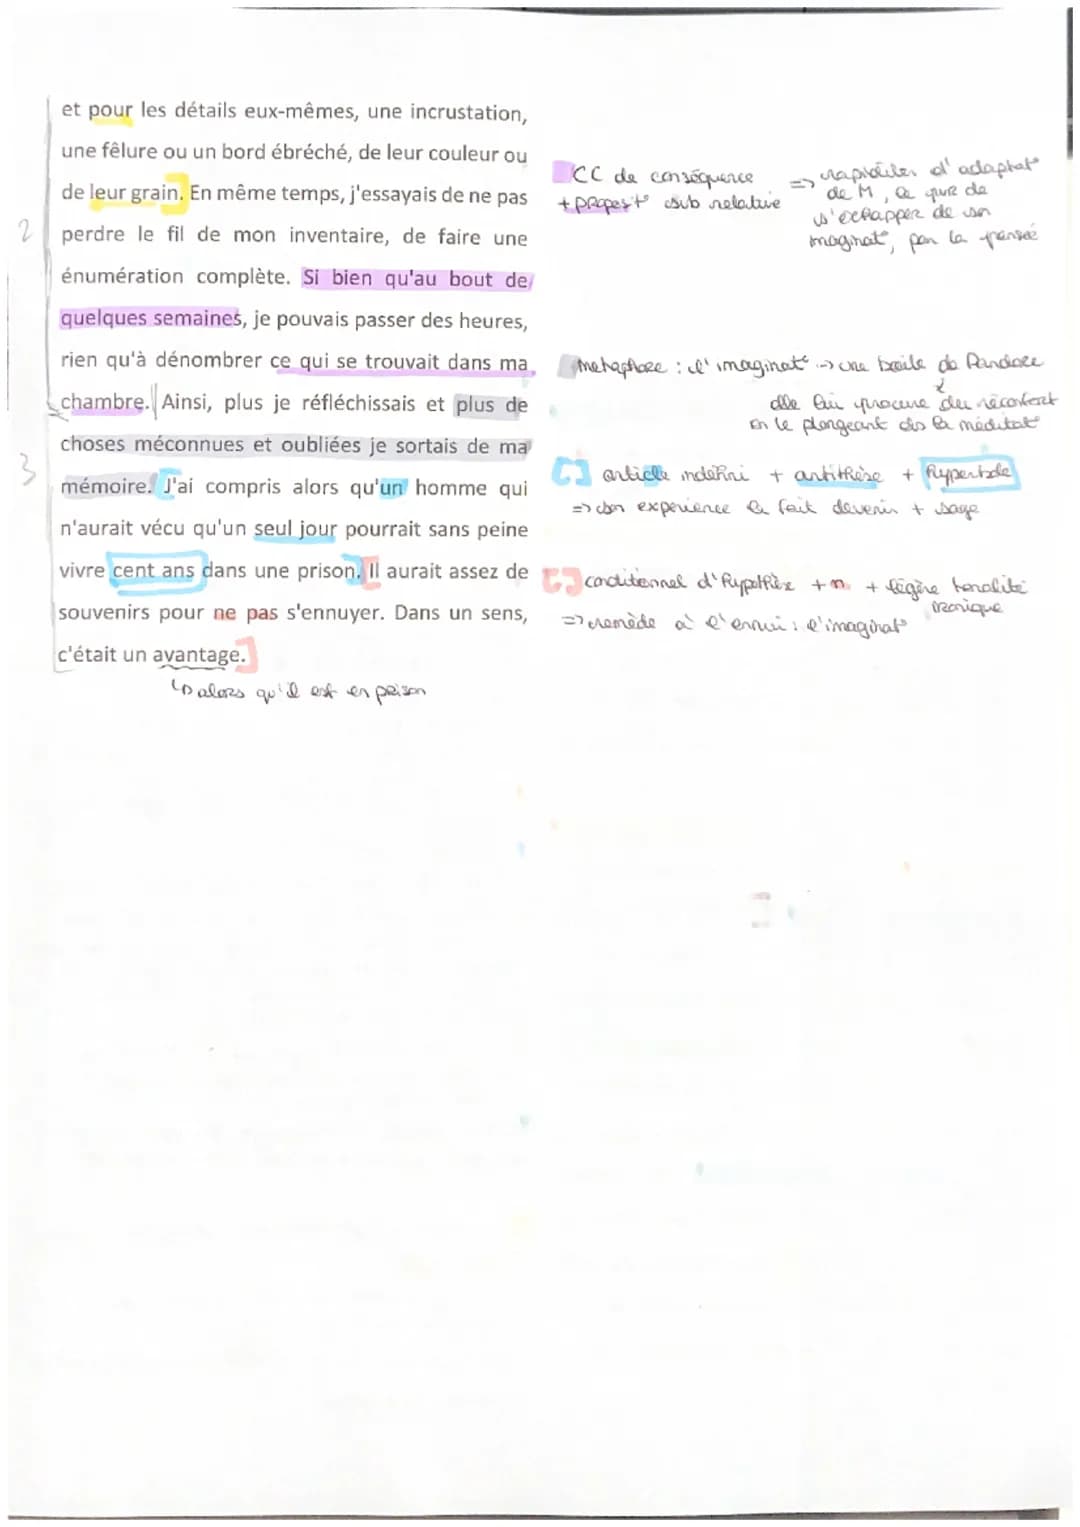 et pour les détails eux-mêmes, une incrustation,
une fêlure ou un bord ébréché, de leur couleur ou
de leur grain. En même temps, j'essayais de ne pas
2
perdre le fil de mon inventaire, de faire une
énumération complète. Si bien qu'au bout de
quelques semaines, je pouvais passer des heures,
rien qu'à dénombrer ce qui se trouvait dans ma
chambre. Ainsi, plus je réfléchissais et plus de
choses méconnues et oubliées je sortais de ma
3
mémoire. J'ai compris alors qu'un homme qui
n'aurait vécu qu'un seul jour pourrait sans peine
vivre cent ans dans une prison. Il aurait assez de
souvenirs pour ne pas s'ennuyer. Dans un sens,
c'était un avantage.
↳ alors qu'il est en prison
CC de conséquence
+ proposit° sub relative
=> d'adaptat°
de M, ce qui de
s'échapper de son
imaginat°, par la pensée
métaphore : l'imaginat° -> une boîte de Pandore
elle lui procure du réconfort
en le plongeant ds la méditat°
[ ] article indéfini + antithèse + hyperbole
=> son expérience le fait devenir + sage
[ ] conditionnel d'hypothèse + n. + légère tonalité
ironique
=> remède à l'ennui : l'imaginat°